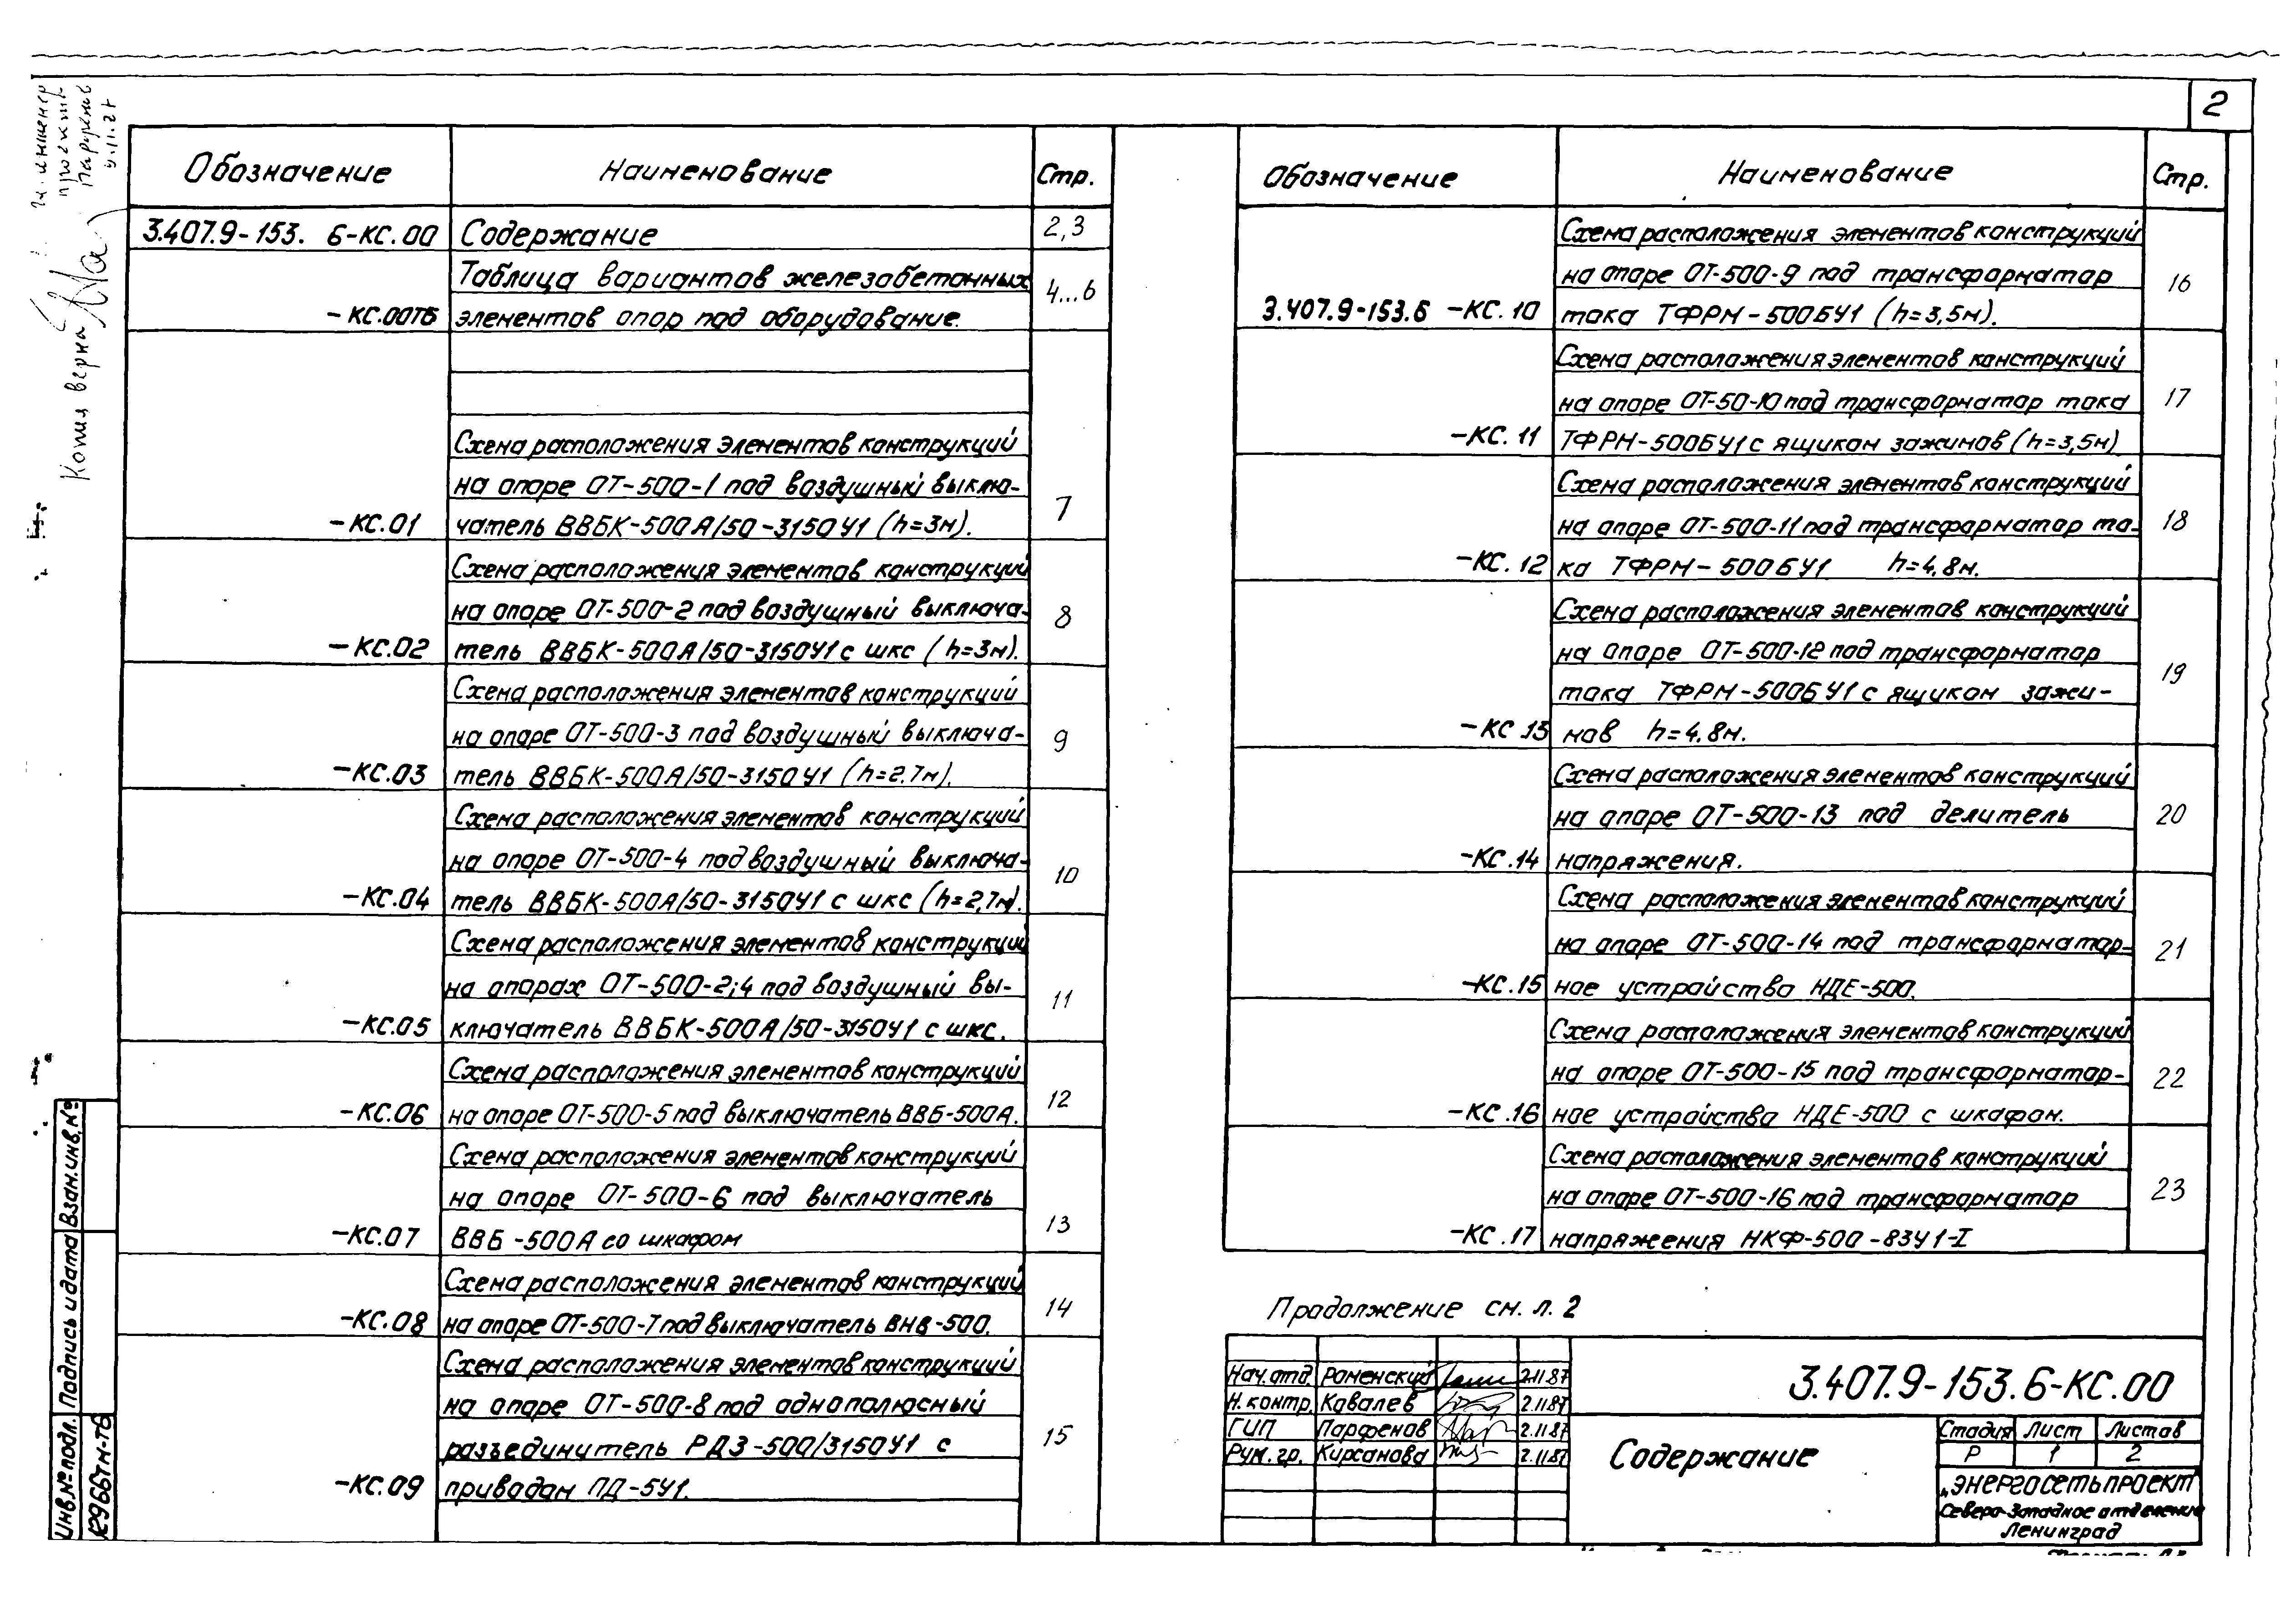 2
Гл. инженер
проекта
Парфенов
Копия верна
Обозначение Наименование Стр.
3.407.9-153. 6-КС.00 Содержание 2,3
Таблица вариантов железобетонных
-КС.00ТБ элементов опор под оборудование. 4...6
Схема расположения элементов конструкций
на опоре ОТ-500-1 под воздушный выклю-
-КС.01 чатель ВВБК-500А/50-3150У1 (h=3м). 7
Схема расположения элементов конструкций
на опоре ОТ-500-2 под воздушный выключа-
-КС.02 тель ВВБК-500А/50-3150У1 с шкс (h=3м). 8
Схема расположения элементов конструкций
на опоре ОТ-500-3 под воздушный выключа-
-КС.03 тель ВВБК-500А/50-3150У1 (h=2.7м). 9
Схема расположения элементов конструкций
на опоре ОТ-500-4 под воздушный выключа-
-КС.04 тель ВВБК-500А/50-3150У1 с шкс (h=2,7м). 10
Схема расположения элементов конструкций
на опорах ОТ-500-2;4 под воздушный вы-
-КС.05 ключатель ВВБК-500А/50-3150У1 с шкс. 11
Схема расположения элементов конструкций
-КС.06 на опоре ОТ-500-5 под выключатель ВВБ-500А. 12
Схема расположения элементов конструкций
на опоре ОТ-500-6 под выключатель
-КС.07 ВВБ-500А со шкафом 13
Схема расположения элементов конструкций
-КС.08 на опоре ОТ-500-7 под выключатель ВНВ-500. 14
Схема расположения элементов конструкций
на опоре ОТ-500-8 под однополюсный
разъединитель РДЗ-500/3150У1 с
-КС.09 приводом ПД-5У1. 15
Обозначение Наименование Стр.
Схема расположения элементов конструкций
на опоре ОТ-500-9 под трансформатор
3.407.9-153.6 -КС.10 тока ТФРМ-500БУ1 (h=3,5м). 16
Схема расположения элементов конструкций
на опоре ОТ-50-10 под трансформатор тока
-КС.11 ТФРМ-500БУ1 с ящиком зажимов (h=3,5м) 17
Схема расположения элементов конструкций
на опоре ОТ-500-11 под трансформатор то-
-КС.12 ка ТФРМ-500БУ1 h=4,8м. 18
Схема расположения элементов конструкций
на опоре ОТ-500-12 под трансформатор
тока ТФРМ-500БУ1 с ящиком зажи-
-КС.13 мов h=4,8м. 19
Схема расположения элементов конструкций
на опоре ОТ-500-13 под делитель
-КС.14 напряжения. 20
Схема расположения элементов конструкций
на опоре ОТ-500-14 под трансформатор-
-КС.15 ное устройство НДЕ-500. 21
Схема расположения элементов конструкций
на опоре ОТ-500-15 под трансформатор-
-КС.16 ное устройство НДЕ-500 с шкафом. 22
Схема расположения элементов конструкций
на опоре ОТ-500-16 под трансформатор
-КС.17 напряжения НКФ-500-83У1-I 23
Продолжение см. л. 2
Нач.отд. Роменский 2.11.87
Н.контр. Ковалев 2.11.87
ГИП Парфенов 2.11.87
Рук.гр. Кирсанова 2.11.87
3.407.9-153.6-КС.00
Содержание
Стадия Лист Листов
Р 1 2
„ЭНЕРГОСЕТЬПРОЕКТ"
Северо-Западное отделение
Ленинград
Взам.инв.№
Подпись и дата
Инв.№ подл.
12966тм-т6